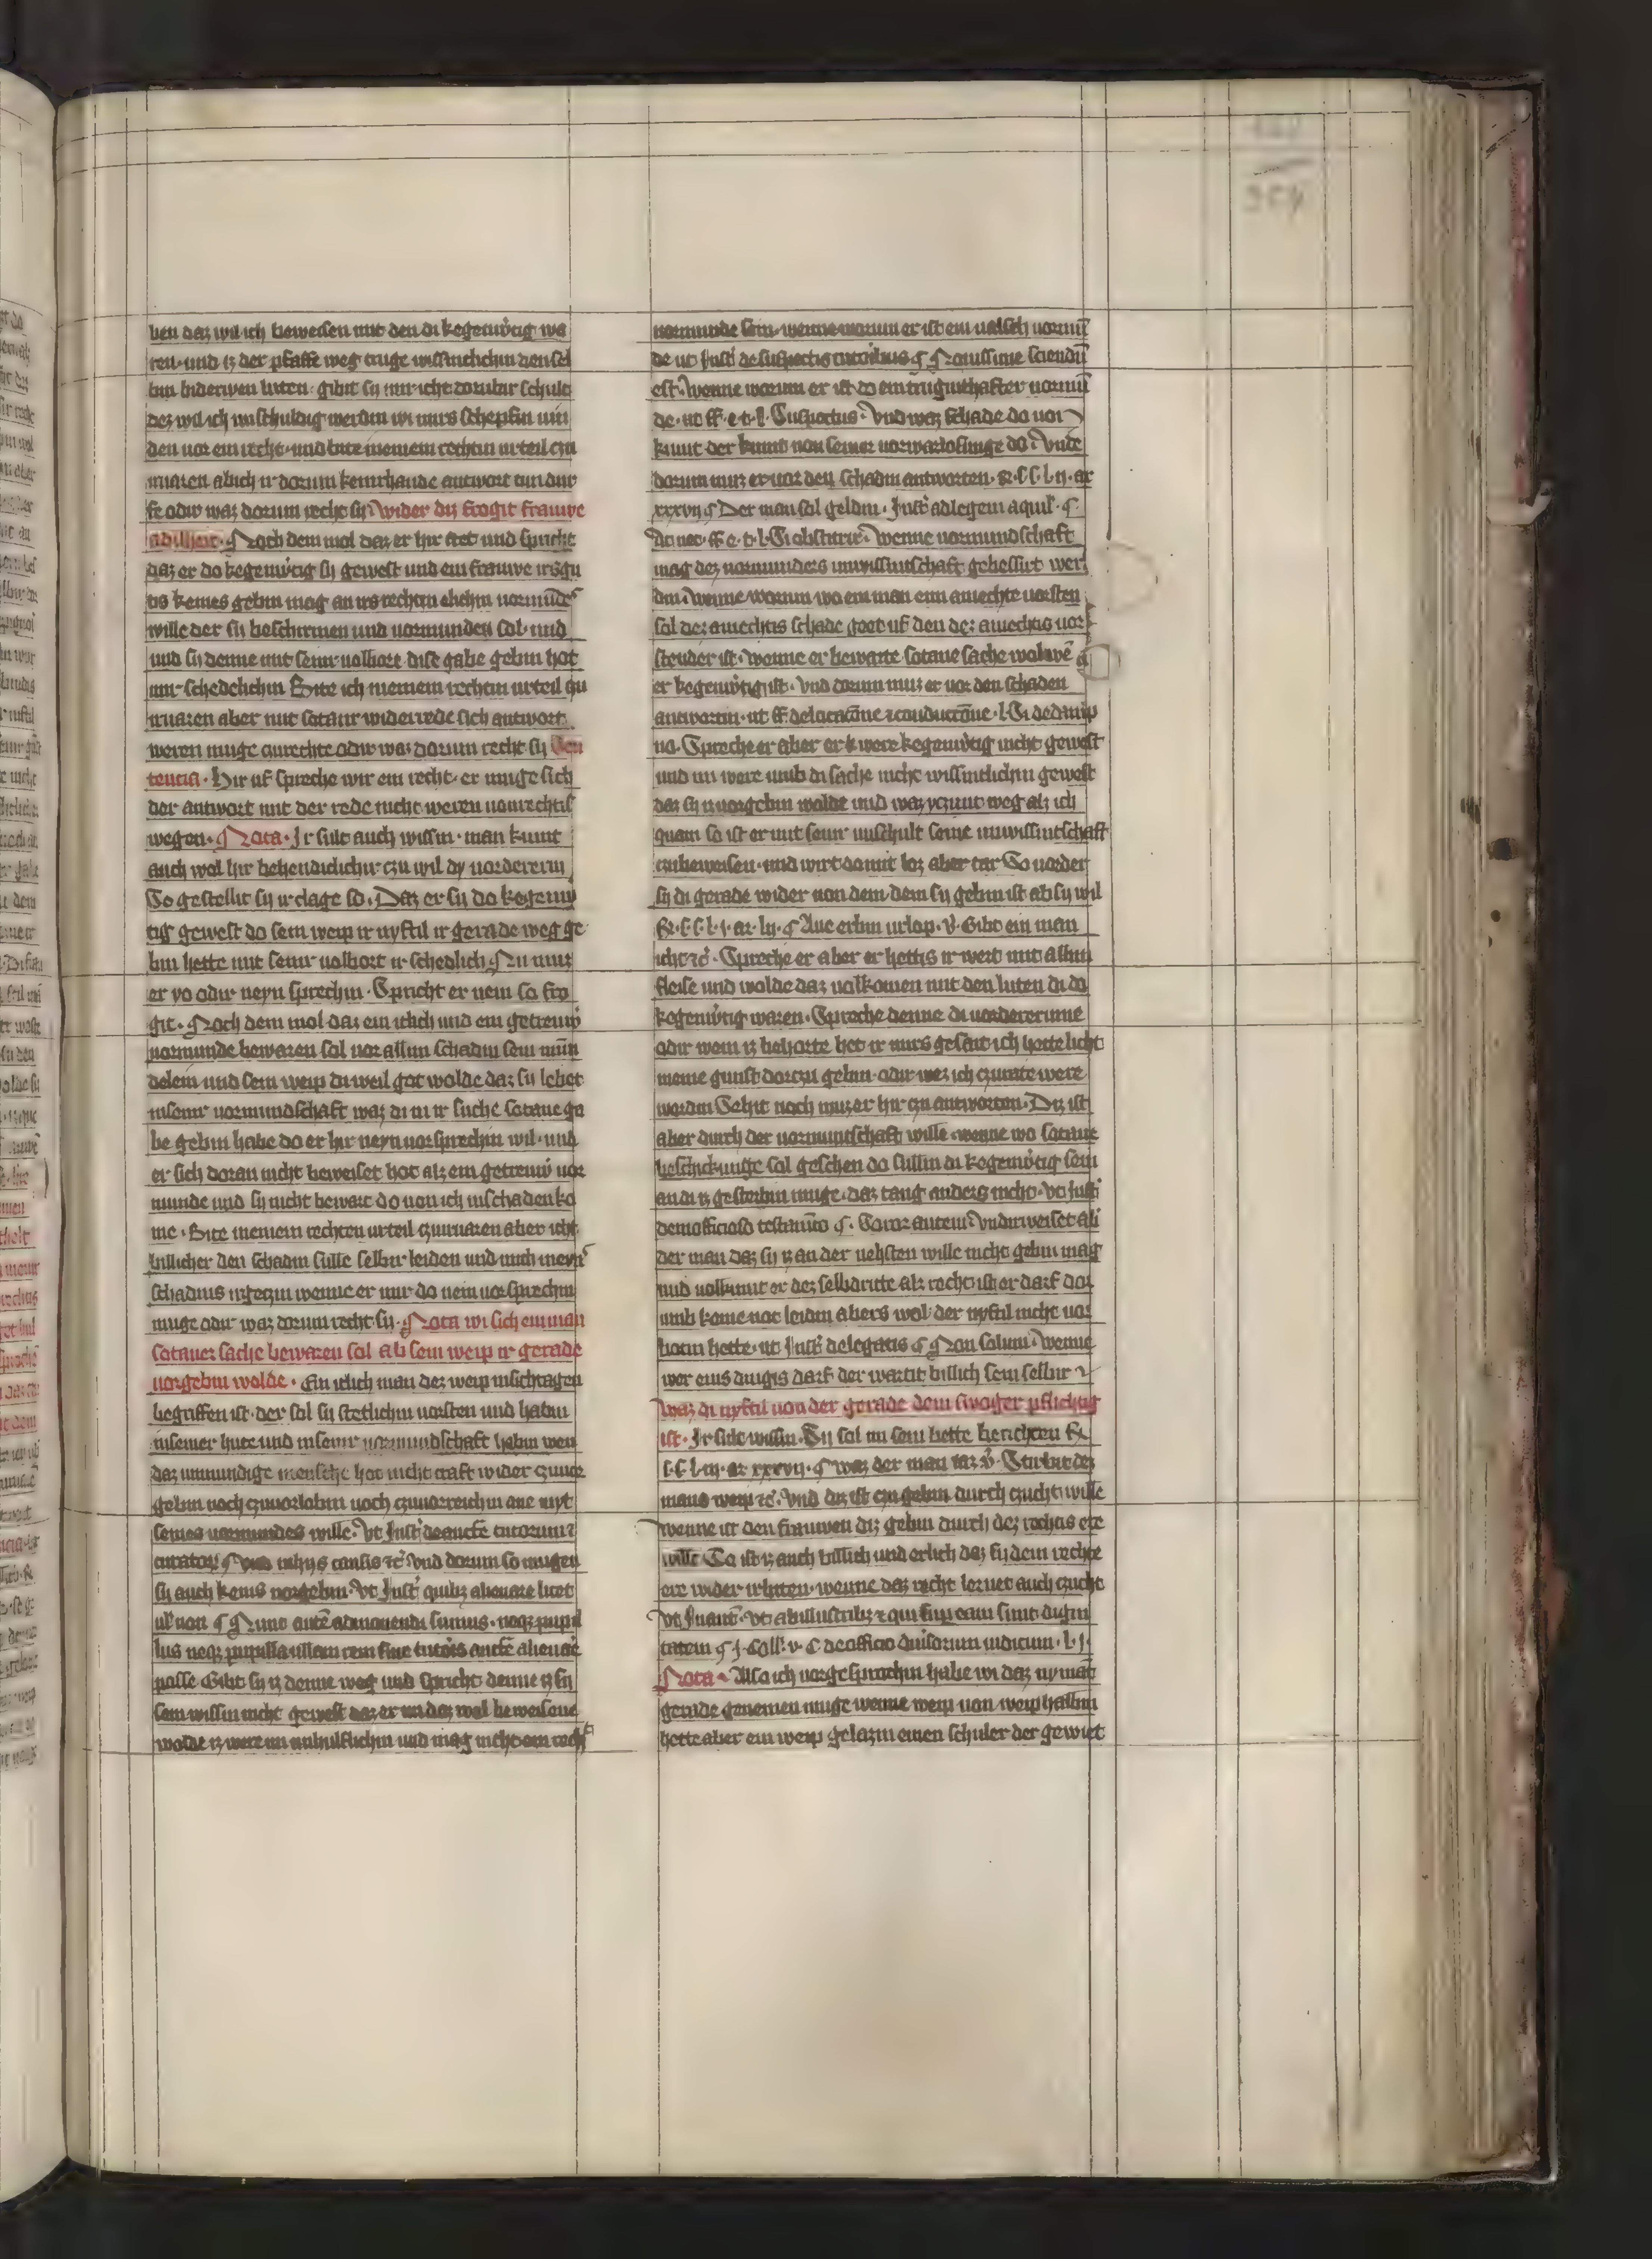 ben daz wil ich beweisen mit den di kegenw'tig wa
ren und iz der pfaffe weg truge wissintlichin den sel
bin biderwen luten gibit sy mir icht dorubir schult
dez wil ich unschuldig werdin
den vor ein recht und bite meinem rechtin urteil czu
waren ab ich ir dorum keinrhande antwort
odir waz dorum recht sy wider diz frogit frauwe
Noch dem mol daz er hir stet und spricht
daz er do kegenw'tig sy gewest und ein frauwe irs gu
tis keines gebin mag an irs rechtin elichin vormud'
wille der sy beschirmen und vormunden sal und
und sy denne mit seinr volbort dise gabe gebin hot
mir schedelichin Bite ich meinem rechtin urteil czu
waren aber mit sotanr widerrede sich antwort
weren muge czu rechte odir waz dorum recht sy Sen
tencia Hir uf spreche wir ein recht er muge sich
der antwort mit der rede nicht weren von rechtis
wegen Nota Ir sult auch wissin man kumt
auch wol hir behendiclichir czu wil dy vordererin
So gestellit sy ir clage so Daz er sy do kegenw
tig gewest do sein weip ir nyftil ir gerade weg ge
bin hette mit seinr volbort ir schedlich Nu muz
er yo odir neyn sprechin Spricht er nein so fro
git Noch dem mol daz ein iclich und ein getreuw
vormunde bewaren sal vor allin schadin sein mun
delein und sein weip di weil got wolde daz sy lebet
in seinr vormundschaft waz di in ir suche sotane ga
be gebin habe do er hir neyn vor sprechin wil und
er sich doran nicht beweiset hot alz ein getreuw vor
munde und sy nicht bewart do von ich in schaden ko
me Bite meinem rechten urteil czuwaren aber icht
billicher den schadin sulle selbir leiden und mich meyn'
schadins irgeczin wenne er mir do nein vor sprechin
muge odir waz dorum recht sy Nota wi sich ein man
sotaner sache bewaren sal ab sein weip ir gerade
vorgebin wolde Ein iclich man dez weip in sichtagen
begriffen ist der sal sy stetlichin vorsten und habin
in seiner hute und in seinr vormundschaft habin wen
daz unmundige mensche hot nicht craft wider czuuor
gebin noch czuuorlobin noch czuuorreichin ane
seines vormundes wille Vt Inst' de auct'e tutorum
curator' und dorum so mugen
sy auch keins vorgebin Vt Inst' quibz alienare licet
ul' non Nunc aute admonendi sumus neqz pupil
lus neqz pupilla ullam rem sine tutoris auct'e alienare
posse Gibt sy iz denne weg und spricht denne iz sy
sein wissin nicht gewest daz er un dez wol beweisene
wolde iz were un unhulflichin und mag nicht ein rech
vormunde sein wenne worum er ist ein valsch vormu
de ut Inst' de suspectis tutoribus Nouissime sciendu
est wenne worum er ist do ein truginthafter vormu
de ut ff e t l Suspectus Und waz schade do von
kumt der kumt von seiner vorwarlosunge do Unde
dorum muz er vor den schadin antworten R s s l ij ar
xxxvij Der man sal geldin Inst' ad legem aquil'
ut ff e t l Si obstetrix Wenne vormundschaft
mag dez vormunders unwissintschaft gebessirt wer
din wenne worum wo ein man einn amechte vorsten
sal dez amechtis schade goet uf den dez amechtis vor
stender ist wenne er bewarte sotane sache wol we
er kegenw'tig ist Und dorum muz er vor den schaden
antwortin ut ff de locacione et conductione l Si de dampno
Spreche er aber er were kegenw'tig nicht gewest
und im were umb di sache nicht wissintlichin gewest
daz sy vorgebin wolde und waz yczunt weg alz ich
quam so ist er mit seinr unschult seine unwissintschaft
czubeweisen und wirt domit loz aber tar So vorder
sy di gerade wider von dem dem sy gebin ist ab sy wil
R s s l j ar lij Ane erbin urlop v Gibt ein man
icht etc Spreche er aber er hettis ir wert mit allim
fleise und wolde daz volkomen mit den luten di do
kegenw'tig waren Spreche denne di vordererinne
odir wem iz behorte het ir mirs gesait ich hette licht
meine gunst dorczu gebin odir wez ich czurate were
wordin Sehit noch muz er hir czu antworten Diz ist
aber durch der vormuntschaft wille wenne wo sotane
beschickunge sal geschen do sullin di kegenw'tig sein
an di iz gesterbin muge daz taug anders nicht Vt Inst'
de inofficioso testamento Soror autem Undirweiset abir
der man daz sy iz an der nehsten wille nicht gebin mag
und volkumt er dez selbdritte alz recht ist er darf dor
umb keine not leidin abers wol der nyftil nicht vor
botin hette ut Inst' de legatis Non solum Wenne
wer eins dingis darf der wartit billich sein selbir
Waz di nyftil von der gerade dem swoger pflichtig
ist Ir sult wissin Sy sal im sein bette berichten R
s s l iij ar xxxvij waz der man v' Stirbit dez
mans weip etc Und diz ist czu gebin durch czucht wille
wenne ist den frauwen diz gebin durch dez rechtis ere
wille So ist iz auch billich und erlich daz sy dem rechte
ere wider irbiten wenne daz recht lernet auch czucht
Vt in auct' Vt ab illustribz et qui super eam sunt digni
tatem j Coll' v C de officio diuersorum iudicum l j
Nota Also ich vorgesprochin habe wi daz nymant
gerade genemen muge wenne weip von weip halbin
hette aber ein weip gelazin einen schuler der gewiet